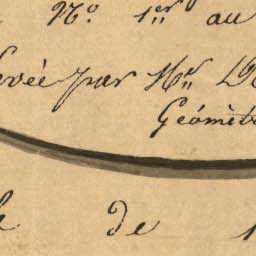 N.º 1.er au
levée par Mr De
Géomèt
de 1